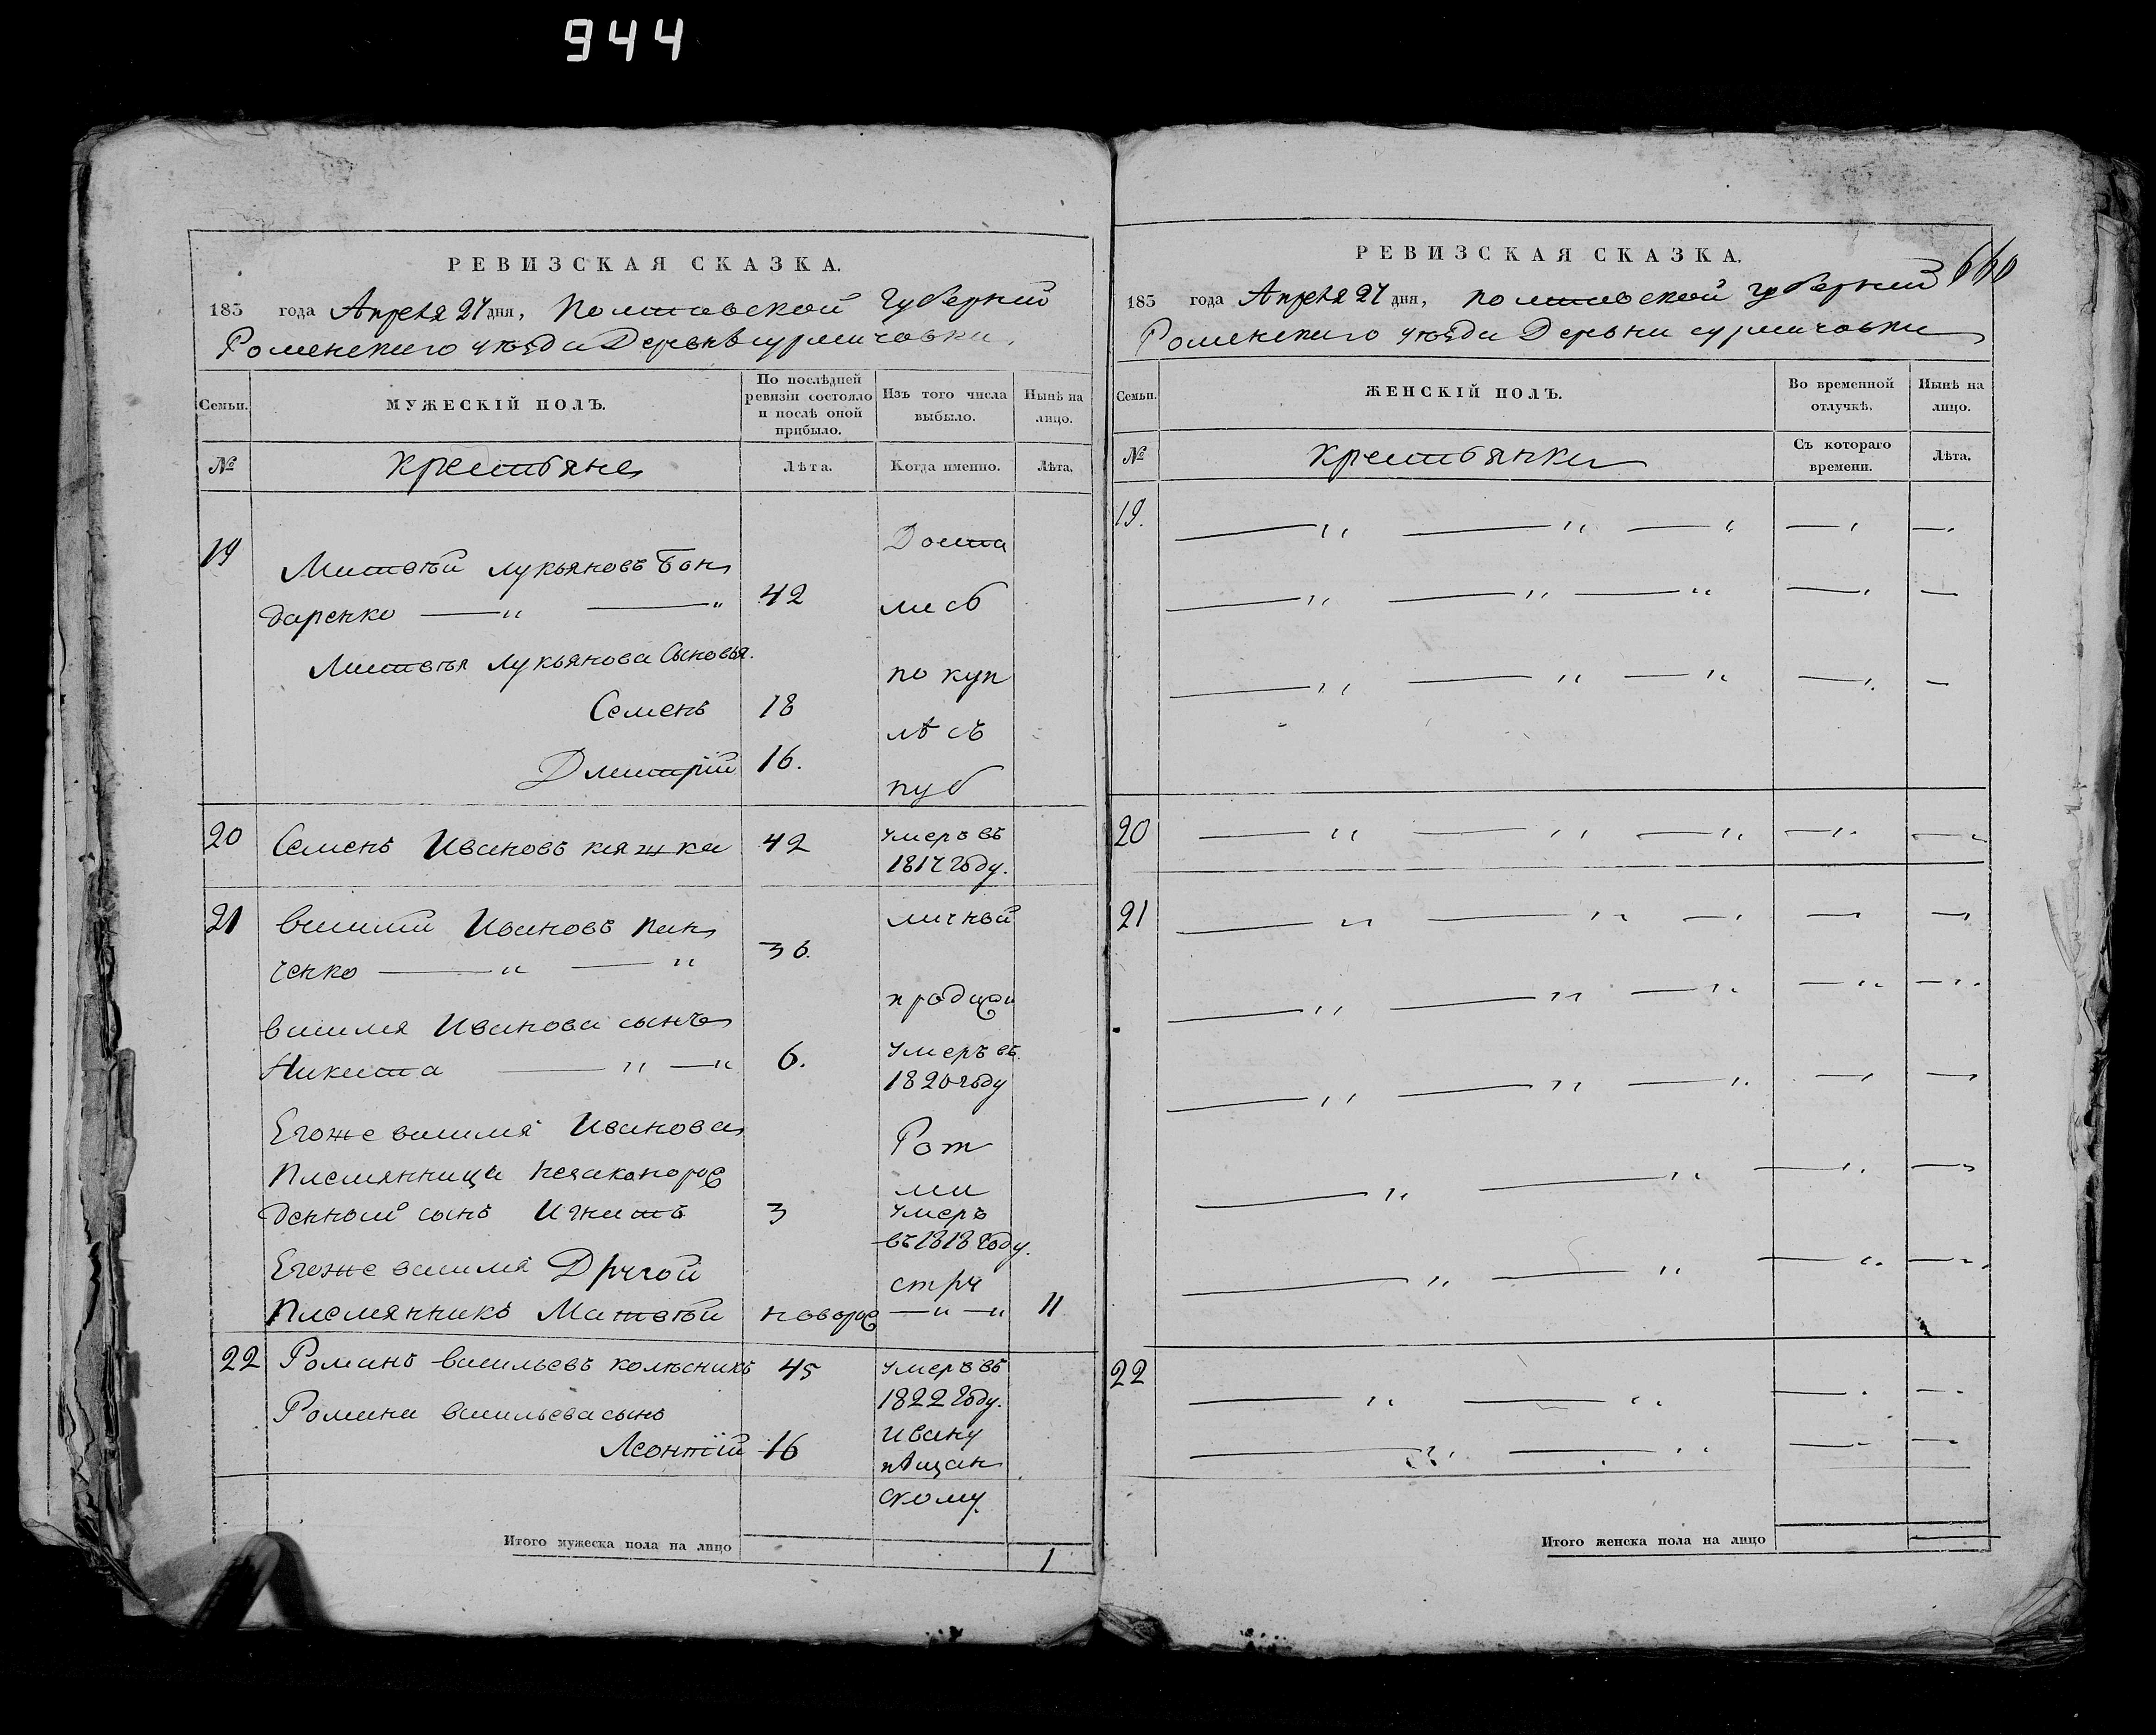 944
РЕВИЗСКАЯ СКАЗКА.
183 года Апреля 27 дня, Полтавской Губерніи
Роменскаго уѣзда Деревнѣ сурмичовки.
Семьи. МУЖЕСКІЙ ПОЛЪ. По послѣдней ревизіи состояло и послѣ оной прибыло. Изъ того числа выбыло. Нынѣ на лицо.
№ крестьяне Лѣта. Когда именно. Лѣта.
19 Доста
Матвѣй Лукьяновъ Бон
даренко —„ —„ 42 лись
Матвѣя Лукьянова Сыновья. по куп
Семенъ 18 лѣ съ
Дмитрій 16. пуб
20 Семенъ Ивановъ кляшка 42 умеръ въ
1817 Году.
21 Василий Ивановъ пан личной
ченко —„ —„ 36.
продажи
василия Иванова сынъ умеръ въ
Никита —„ —„ 6. 1820 году
Егоже василия Иванова Рот
Племянница незаконорож ми
денной сынъ Игнатъ 3 умеръ
въ 1818 Году.
Егоже василия Другой стру
Племянникъ Матвѣй новорож —„ —„ 11
22 Романъ васильевъ колѣсникъ 45 умеръ въ
1822 Году.
Романа васильева сынъ Ивану
Леонтій 16 пѣщан
скому.
Итого мужеска пола на лицо 1
660
РЕВИЗСКАЯ СКАЗКА.
183 года Апреля 27 дня, полтавской губерніи
Роменскаго уѣзда Деревни сурмичовки
Семьи. ЖЕНСКІЙ ПОЛЪ. Во временной отлучкѣ. Нынѣ на лицо.
№ крестьянки Съ котораго времени. Лѣта.
19. —„ —„ —„ —„ —.
—„ —„ —„ —„ —
—„ —„ —„ —„ —
20 —„ —„ —„ —„ —„
21 —„ —„ —„ —„ —„
—„ —„ —„ —„ —„
—„ —„ —„ —„ —„
—„ —„ —„ —„
—„ —„ —„ —„
22 —„ —„ —. —.
—„ —„ —. —.
Итого женска пола на лицо